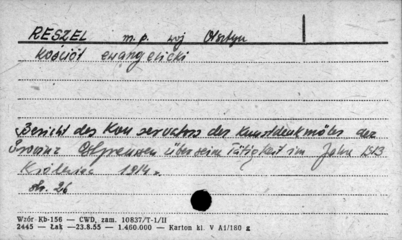 RESZEL m.p. woj Olsztyn
Kościół ewangelicki
Bericht des Kon servators der Kunstdenkmäler der
Provinz Ostpreussen über seine Tätigkeit im Jahre 1913
Królewiec 1914.
str. 26
Wzór Kb-156 — CWD, zam. 10837/T-1/II
2445 — Łak — 23.8.55 — 1.460.000 — Karton kl. V A1/160 g